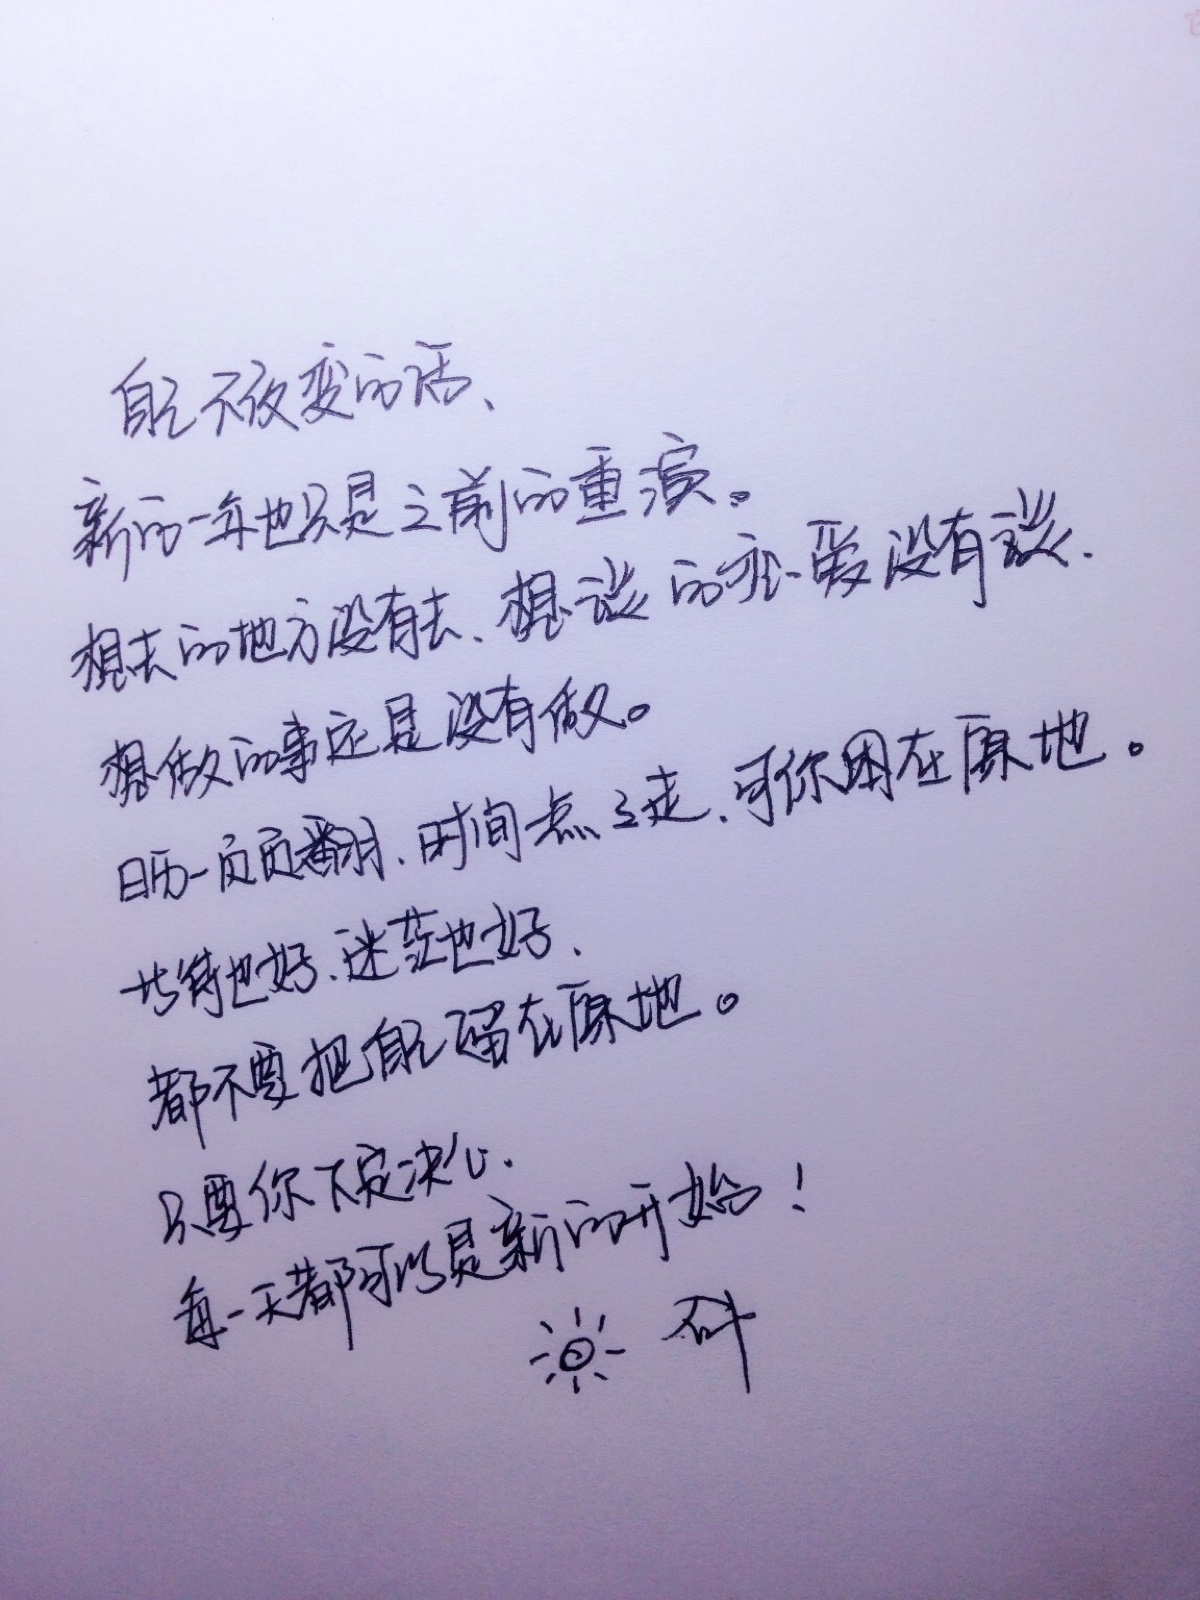 自己不改变的话、
新的一年也只是之前的重演。
想去的地方没有去、想谈的恋爱没有谈、
想做的事还是没有做。
日历一页页翻、时间点点走、可你困在原地。
等待也好、迷茫也好、
都不要把自己留在原地。
只要你下定决心、
每一天都可以是新的开始！